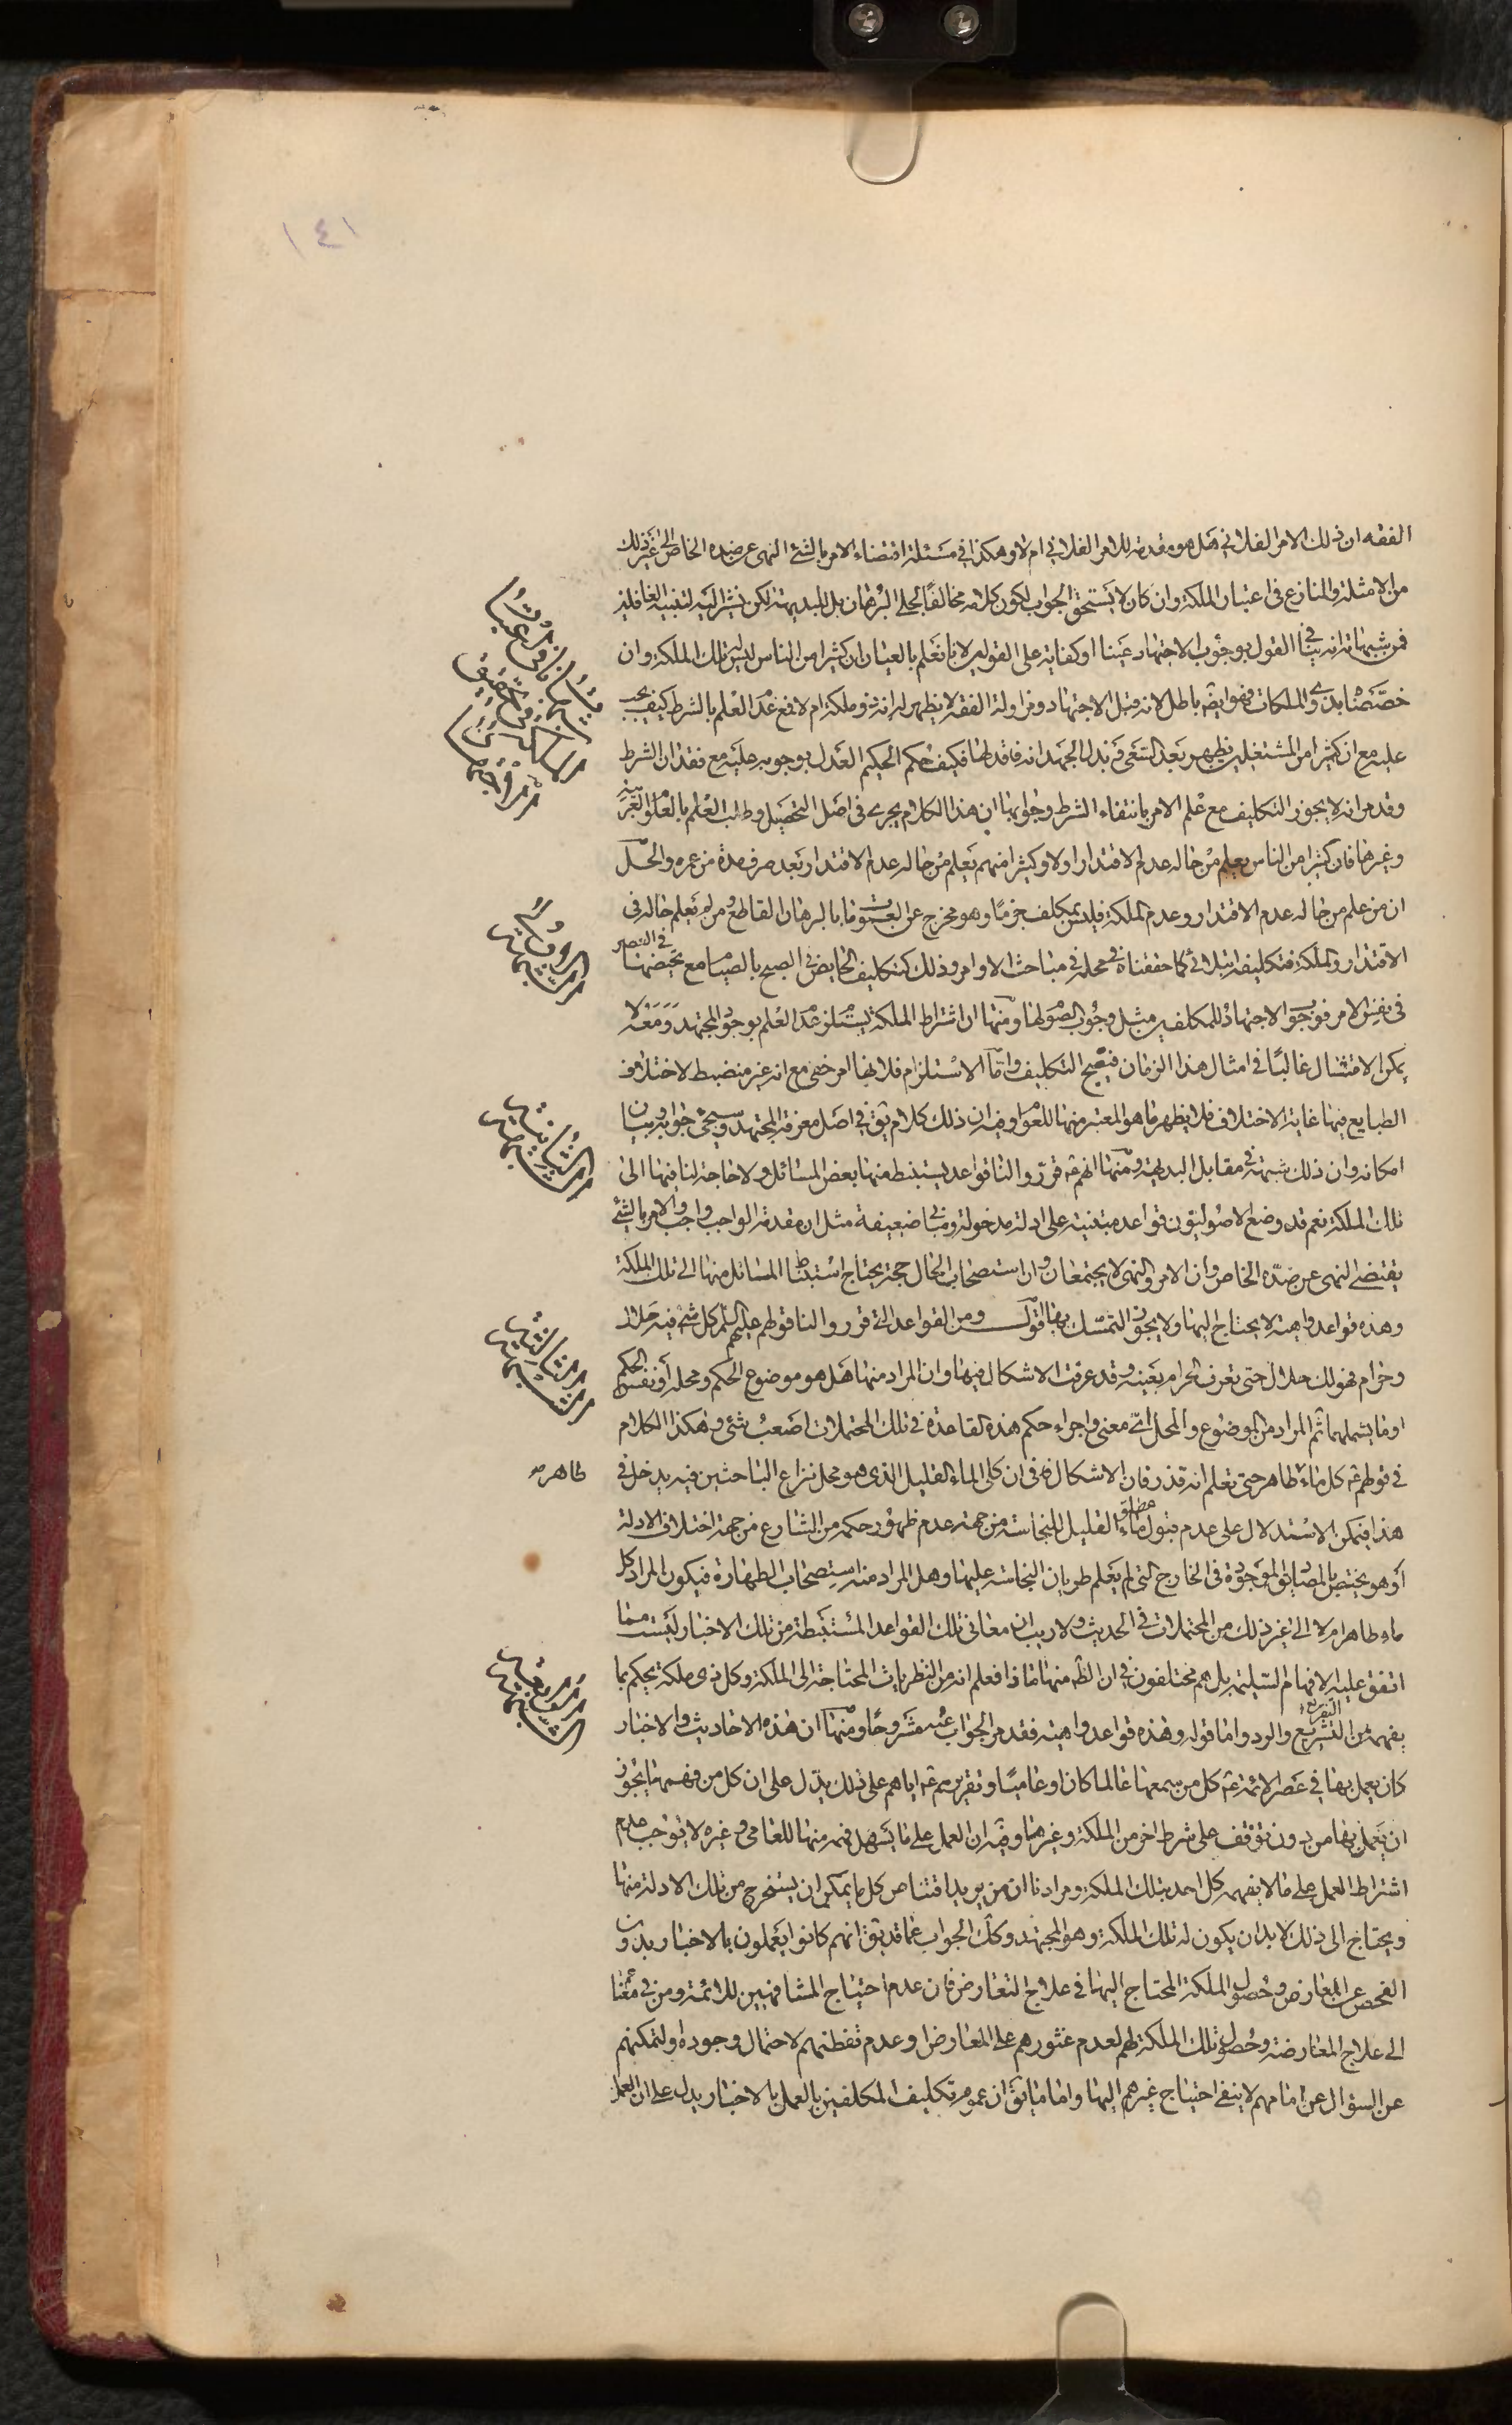 ١٤١
الفقه ان ذلك الامر الفلاني هل هو مقدمة للامر الفلاني ام لا وهكذا في مسئلة اقتضاء الامر بالشئ النهى عن ضده الخاص الى غير ذلك
من الامثلة والمنازع فى اعتبار الملكة وان كان لا يستحق الجواب لكون كلامه مخالفا لجلى البرهان بل للبديهة لكن نشير اليه لتنبيه الغافلين
فمن شبهاته انه ينافى القول بوجوب الاجتهاد عينا او كفاية على القولين لانا نعلم بالعيان ان كثيرا من الناس ليس له تلك الملكة وان
خصصنا بذى الملكات فهو ايضا باطل لانه قبل الاجتهاد ومزاولة الفقه لا يظهر له انه ذو ملكة ام لا فمع عدم العلم بالشرط كيف يجب
عليه مع ان كثيرا من المشتغلين يظهر بعد السعى وبذل الجهد انه فاقد لها فكيف حكم الحكيم العدل بوجوبه عليه مع فقدان الشرط
وقد مر انه لا يجوز التكليف مع علم الامر بانتفاء الشرط وجوابها ان هذا الكلام يجرى فى اصل التحصيل وطلب العلم بالعلوم العربية
وغيرها فان كثيرا من الناس يعلم من حاله عدم الاقتدار اولا وكثيرا منهم يعلم من حاله عدم الاقتدار بعد صرف مدة من عمره والحل
ان من علم من حاله عدم الاقتدار وعدم الملكة فليس بمكلف جزما وهو مخرج عن العمومات بالبرهان القاطع ومن لم يعلم حاله فى
الاقتدار والملكة فتكليفه ابتلائى كما حققناه فى محله فى مباحث الاوامر وذلك كتكليف الحايض فى الصبح بالصيام مع تحيضها فى العصر
فى نفس الامر فوجوب الاجتهاد للمكلفين مثل وجوب الصوم لها ومنها ان اشتراط الملكة يستلزم عدم العلم بوجود المجتهد ومعه لا
يمكن الامتثال غالبا فى امثال هذا الزمان فيقبح التكليف واما الاستلزام فلانها امر خفى مع انه غير منضبط لاختلاف
الطبايع فيها غاية الاختلاف فلا يظهر ما هو المعتبر منها للعوام وفيه ان ذلك كلام يق فى اصل معرفة المجتهد وسيجئ جوابه وبيان
امكانه وان ذلك شبهة فى مقابل البديهة ومنها انهم ع قرروا لنا قواعد يستنبط منها بعض المسائل ولا حاجة لنا فيها الى
تلك الملكة نعم قد وضع الاصوليون قواعد مبتنية على ادلة مدخولة ومبانى ضعيفة مثل ان مقدمة الواجب واجب والامر بالشئ
يقتضى النهى عن ضده الخاص وان الامر والنهى لا يجتمعان وان استصحاب الحال حجة يحتاج استنباط المسائل منها الى تلك الملكة
وهذه قواعد واهية لا يحتاج اليها ولا يجوز التمسك بها اقول ومن القواعد التى قرروا لنا قولهم عليهم السلام كل شئ فيه حلال
وحرام فهو لك حلال حتى تعرف الحرام بعينه وقد عرفت الاشكال فيها وان المراد منها هل هو موضوع الحكم ومحله او نفس الحكم
او ما يشملهما ثم المراد من الموضوع والمحل اى معنى واجراء حكم هذه القاعدة فى تلك المحتملات اصعب شئ وهكذا الكلام
فى قولهم ع كل ماء طاهر حتى تعلم انه قذر فان الاشكال فى ان كلى الماء القليل الذى هو محل نزاع الباحثين فيه يدخل فى
طاهر
هذا فيمكن الاستدلال على عدم قبول مطلق ماء القليل للنجاسة من جهة عدم ظهور حكمه من الشارع من جهة اختلاف الادلة
او هو يختص بالمصاديق الموجودة فى الخارج التى لم يعلم طريان النجاسة عليها وهل المراد منه استصحاب الطهارة فيكون المراد كل
ماء طاهر ام لا الى غير ذلك من المحتملات فى الحديث ولا ريب ان معانى تلك القواعد المستنبطة من تلك الاخبار ليست مما
اتفق عليه الافهام السليمة بل هم مختلفون فى ان الظ منها ماذا فعلم انه من النظريات المحتاجة الى الملكة وكل ذى ملكة يحكم بما
يفهمه من التفريع والرد واما قوله وهذه قواعد واهية فقد مر الجواب عنه مشروحا ومنها ان هذه الاحاديث والاخبار
كان يعمل بها فى عصر الائمة ع كل من سمعها عالما كان او عاميا وتقريرهم ع اياهم على ذلك يدل على ان كل من فهمها يجوز
ان يعمل بها من دون توقف على شرط اخر من الملكة وغيرها وفيه ان العمل على ما يسهل فهمه منها للعامى وغيره لا يوجب عدم
اشتراط العمل على ما لا يفهمه كل احد بتلك الملكة ومرادنا ان من يريد اقتناص كل ما يمكن ان يستخرج من تلك الادلة منها
ويحتاج الى ذلك لا بد ان يكون له تلك الملكة وهو المجتهد وكك الجواب عما قد يق انهم كانوا يعملون بالاخبار بدون
الفحص عن المعارض وحصول الملكة المحتاج اليها فى علاج التعارض فان عدم احتياج المشافهين للائمة ومن فى معناهم
الى علاج المعارضة وحصول تلك الملكة لهم لعدم عثورهم على المعارض او عدم تفطنهم لاحتمال وجوده او لتمكنهم
عن السؤال عن امامهم لا ينفى احتياج غيرهم اليها واما ما يق ان عموم تكليف المكلفين بالعمل بالاخبار يدل على ان العمل
الشبهة الاولى
الشبهة الثانية
الشبهة الثالثة
الشبهة الرابعة